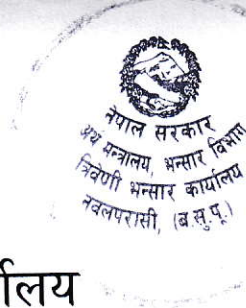 नेपाल सरकार
अर्थ मन्त्रालय, भन्सार विभाग
त्रिवेणी भन्सार कार्यालय
नवलपरासी, (ब.सु.पू.)
र्यालय